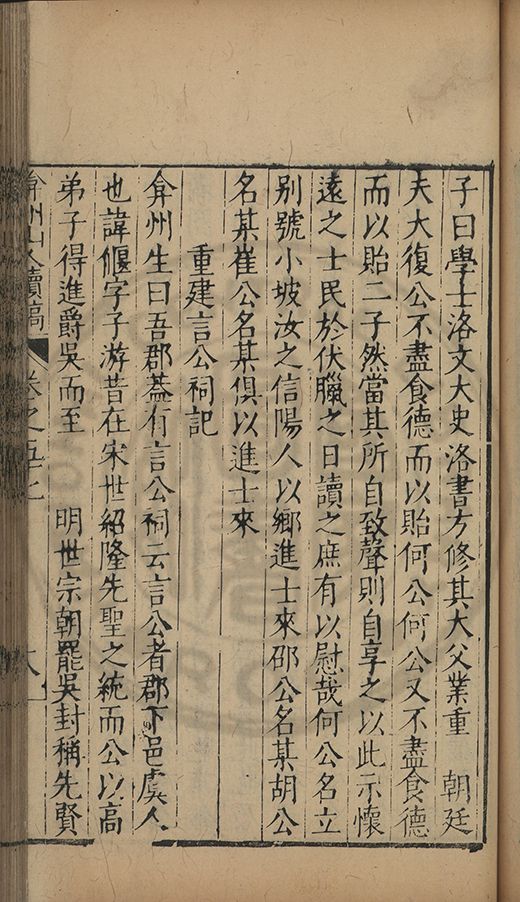 子曰學士洛文大史洛書方修其大父業重　朝廷
夫大復公不盡食德而以貽何公何公又不盡食德
而以貽二子然當其所自致聲則自享之以此示懷
遠之士民於伏臘之日讀之庶有以慰哉何公名立
别號小坡汝之信陽人以鄉進士來邵公名某胡公
名某崔公名某俱以進士來
重建言公祠記
弇州生曰吾郡葢有言公祠云言公者郡下邑虞人
也諱偃字子游昔在宋世紹隆先聖之統而公以高
弟子得進爵吳而至　明世宗朝罷吳封稱先賢
弇州山人續稿　卷之五十七　六